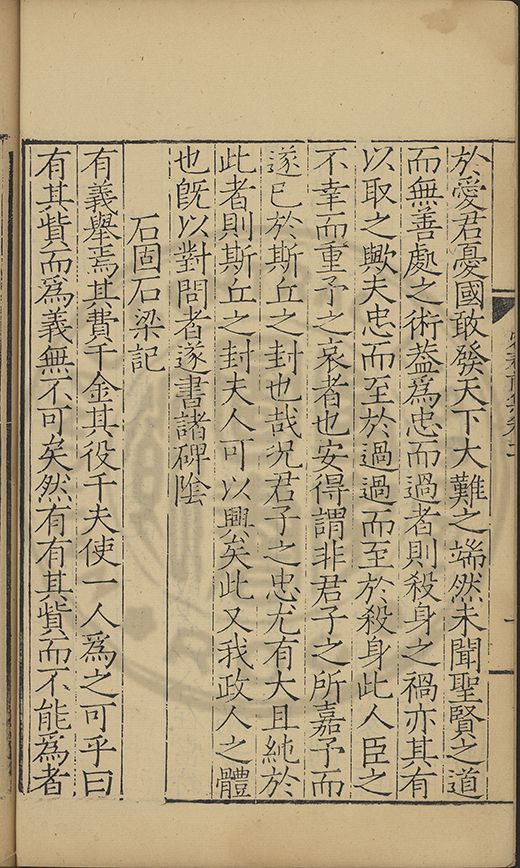 於愛君憂國敢發天下大難之端然未聞聖賢之道
而無善處之術葢為忠而過者則殺身之禍亦其有
以取之歟夫忠而至於過過而至於殺身此人臣之
不幸而重予之哀者也安得謂非君子之所嘉予而
遂已於斯丘之封也哉况君子之忠尤有大且純於
此者則斯丘之封夫人可以興矣此又我政人之體
也旣以對問者遂書諸碑陰
石固石梁記
有義舉焉其費千金其役千夫使一人為之可乎曰
有其貲而為義無不可矣然有有其貲而不能為者